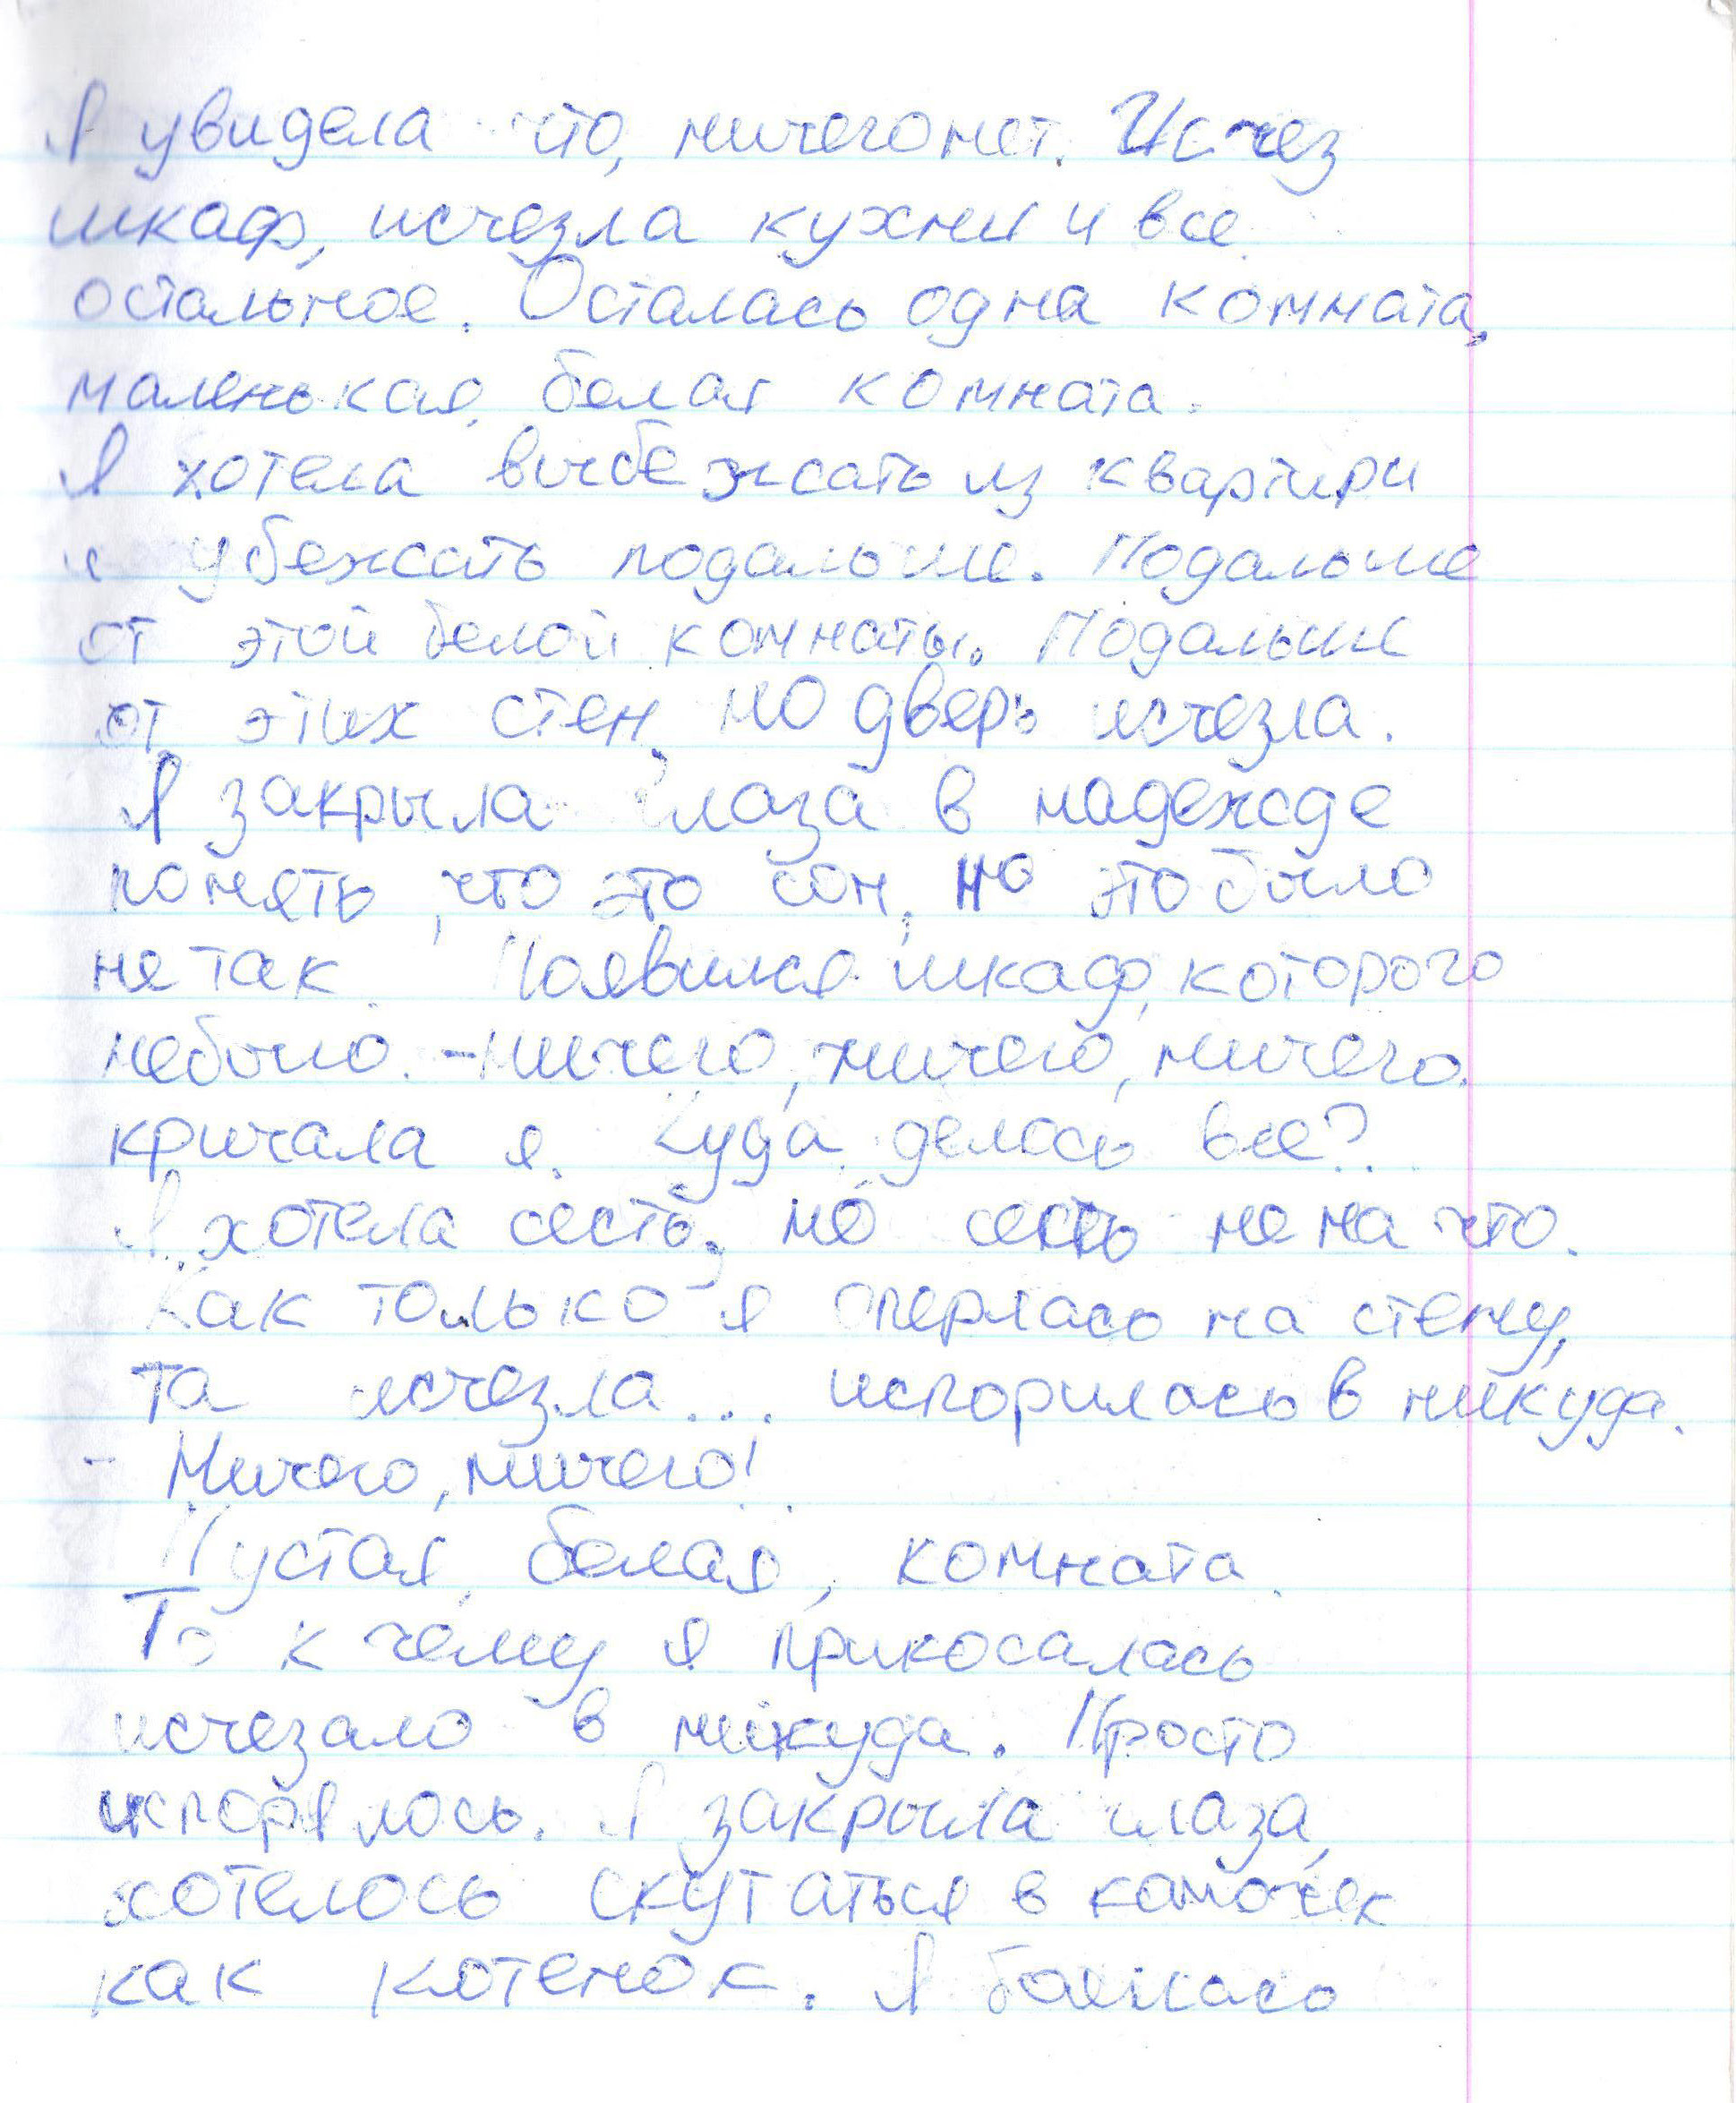 Я увидела что, ничего нет. Исчез
шкаф, исчезла кухня и все
остальное. Осталась одна комната,
маленькая, белая комната.
Я хотела выбежать из квартири
и убежать подальше. Подальше
от этой белой комнаты. Подальше
от этих стен, но дверь исчезла.
Я закрыла глаза в надежде
понять, что это сон, но это было
не так. Появился шкаф, которого
небыло. - ничего, ничего, ничего.
кричала я. Куда делось все?
Я хотела сесть, но сесть не на что.
Как только я оперлась на стену,
та исчезла... испорилась в никуда.
- Ничего, ничего!
Пустая, белая, комната.
То к чему я прикосалась
исчезало в никуда. Просто
испорялось. Я закрыла глаза,
хотелось скутаться в камочек
как котенок. Я боялась